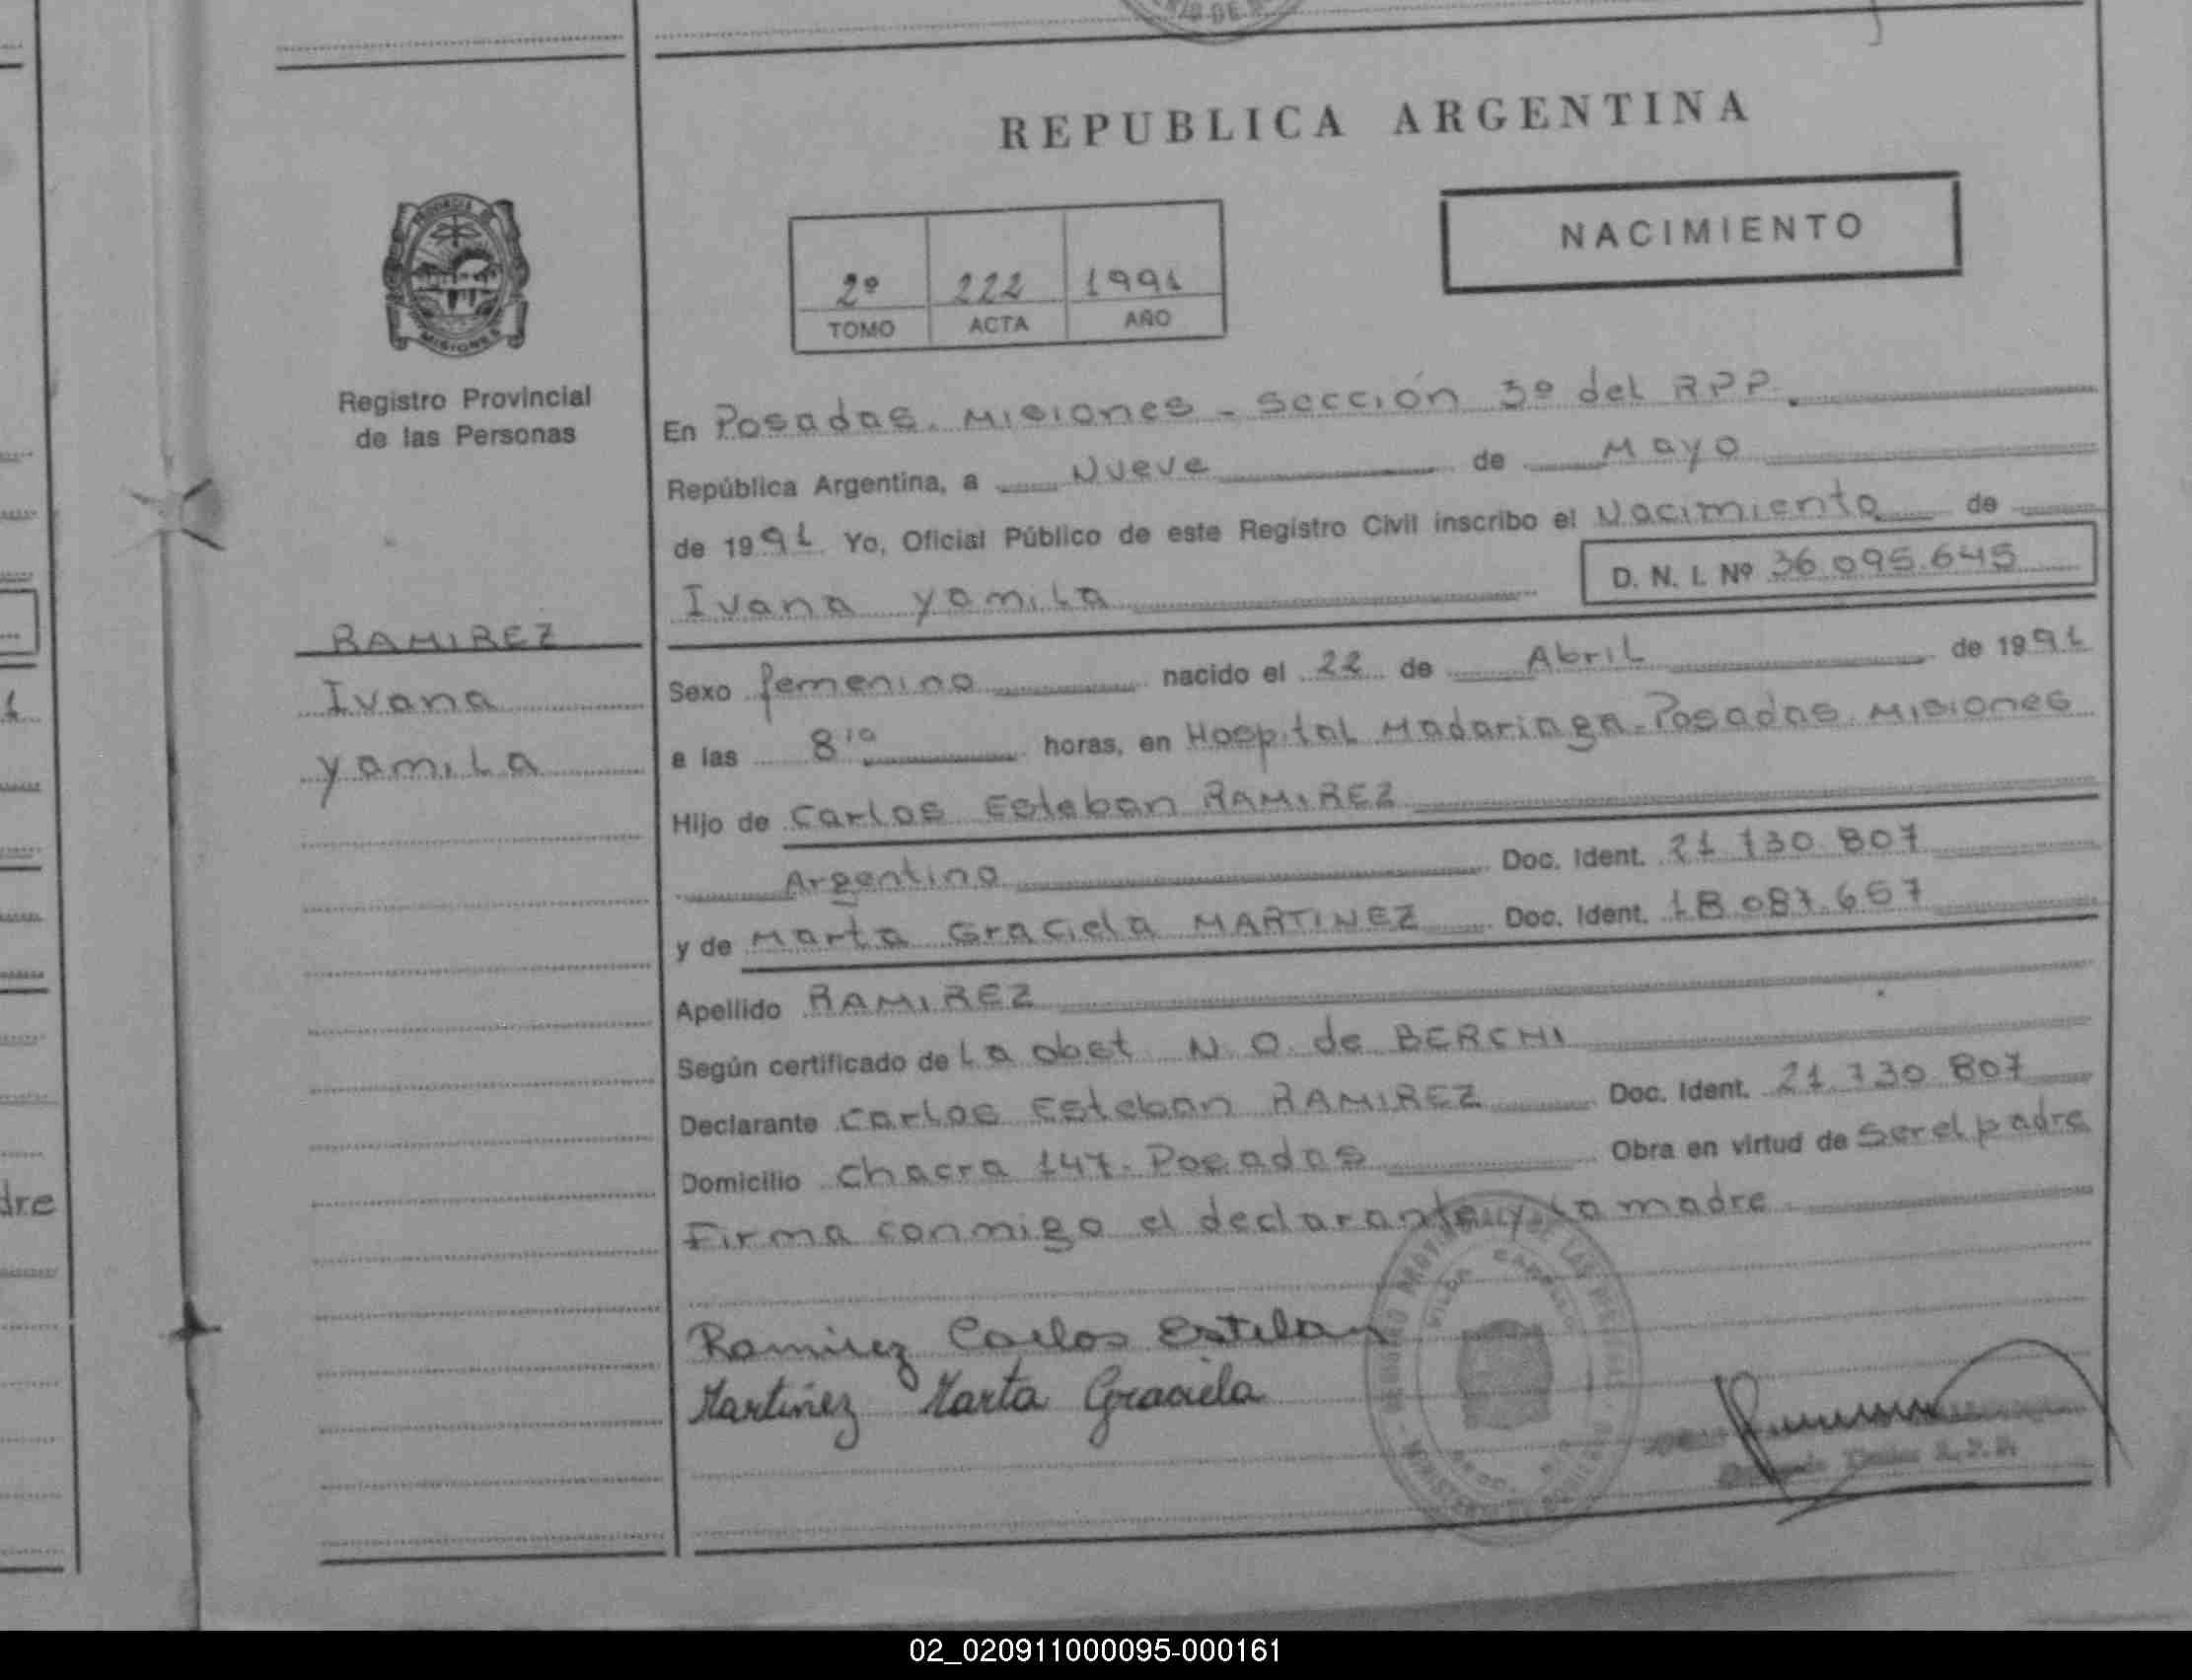 REPUBLICA ARGENTINA
NACIMIENTO
2º 222 1991
TOMO ACTA AÑO
PROVINCIA DE
MISIONES
Registro Provincial
de las Personas
RAMIREZ
Ivana
Yamila
En Posadas. Misiones - Sección 3º del RPP.
República Argentina, a Nueve de Mayo
de 1991 Yo, Oficial Público de este Registro Civil inscribo el Nacimiento de
Ivana Yamila D. N. I. Nº 36.095.645
Sexo femenino nacido el 22 de Abril de 1991
a las 8¹⁰ horas, en Hospital Madaringa-Posadas. Misiones
Hijo de Carlos Esteban RAMIREZ
Argentino Doc. Ident. 21.730.807
y de Marta Graciela MARTINEZ Doc. Ident. 18.087.657
Apellido RAMIREZ
Según certificado de La obst N. O. de BERCHI
Declarante Carlos Esteban RAMIREZ Doc. Ident. 21.730.807
Domicilio Chacra 147. Posadas Obra en virtud de Ser el padre
Firma conmigo el declarante y la madre
Ramirez Carlos Esteban
Martinez Marta Graciela
dre
02_020911000095-000161